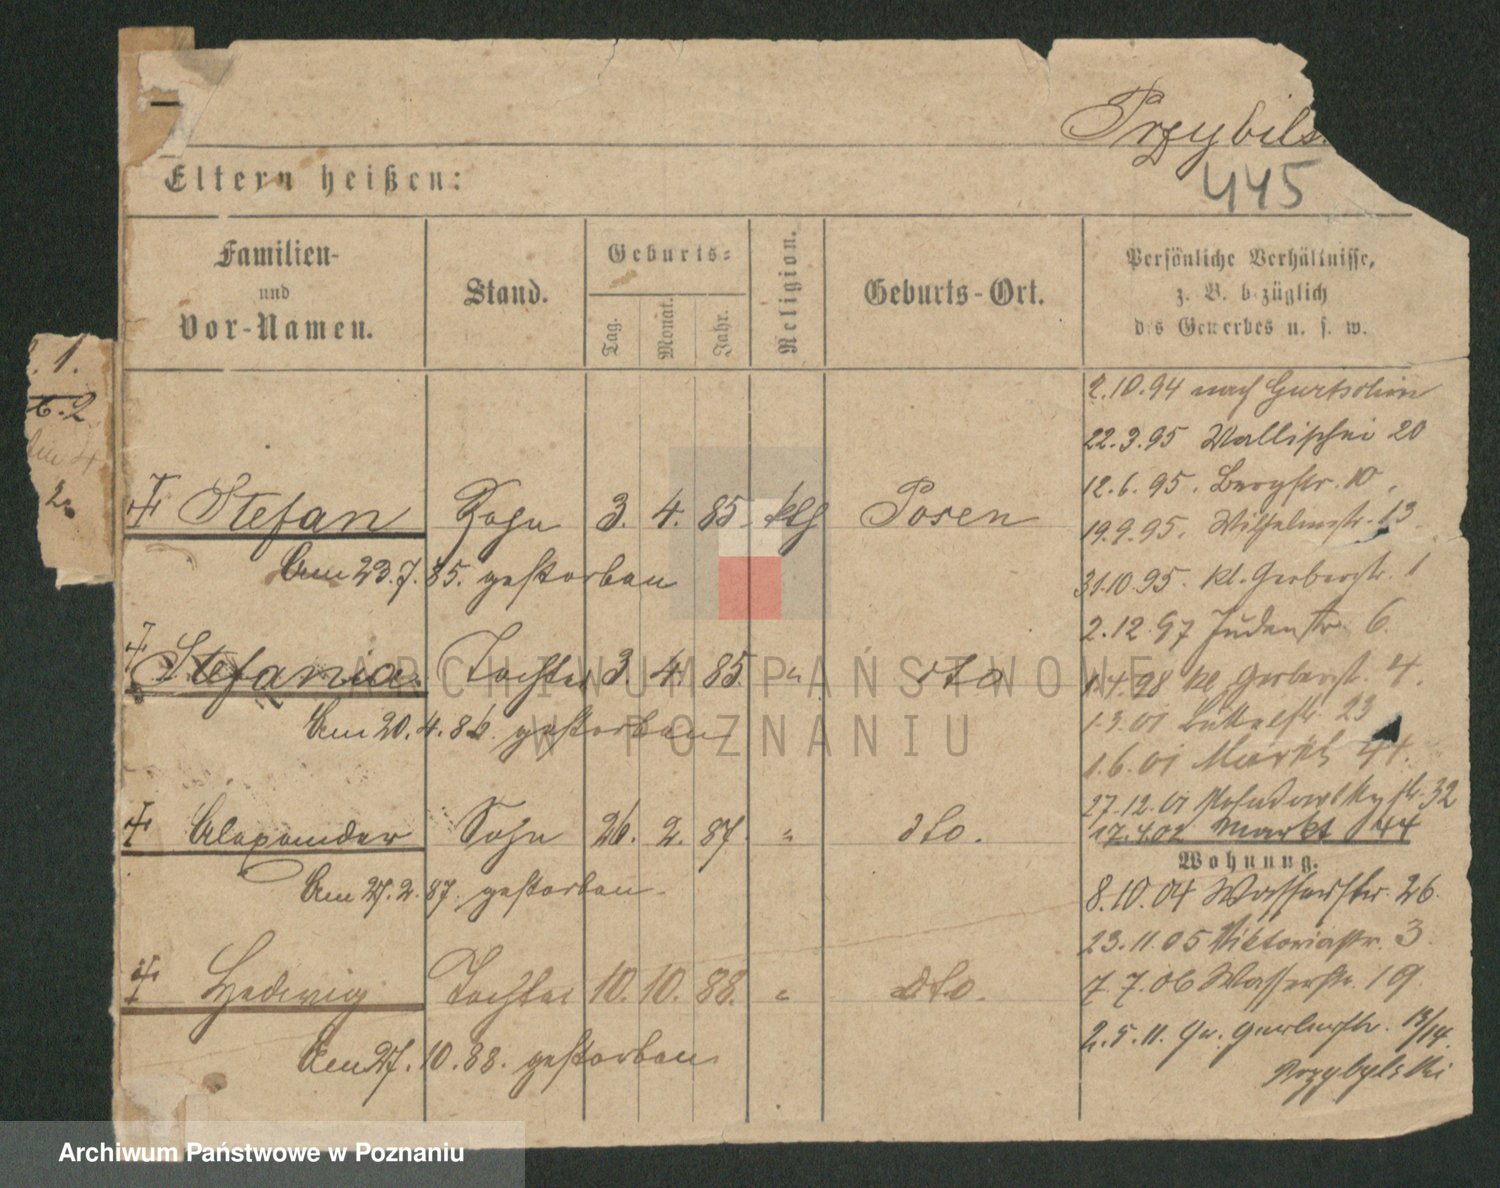 Przybils
445
Eltern heißen:
Familien- und Vor-Namen.
Stand.
Geburts-
Tag.
Monat.
Jahr.
Religion.
Geburts-Ort.
Persönliche Verhältnisse,
z. B. bezüglich
des Gewerbes u. s. w.
1.
6.2
2.
2.10.94 nach
22.3.95 Wallischei 20
12.6.95. Bergstr. 10.
Stefan Sohn 3. 4. 85. ktlh Posen
19.9.95. Wilhelmstr. 13
Am 23.7.85. gestorben
31.10.95. kl. Gerberstr. 1
2.12.97 Judenstr. 6
Stefania Tochter 3. 4. 85. " dto
1.4.98 kl. Gerberstr. 4.
Am 20.4.86. gestorben
1.3.01 23
1.6.01 Markt 44.
27.12.01 32
Alexander Sohn 26. 2. 87. " dto.
17.4.02 Markt 44
Wohnung.
Am 27.2.87. gestorben
8.10.04 Wasserstr. 26.
23.11.05 Viktoriastr. 3.
Hedwig Tochter 10. 10. 88. " dto.
7.7.06 Wasserstr. 19.
Am 27.10.88. gestorben
2.5.11. Gr. Gerberstr. 13/14.
Przybylski
ARCHIWUM PAŃSTWOWE
W POZNANIU
Archiwum Państwowe w Poznaniu